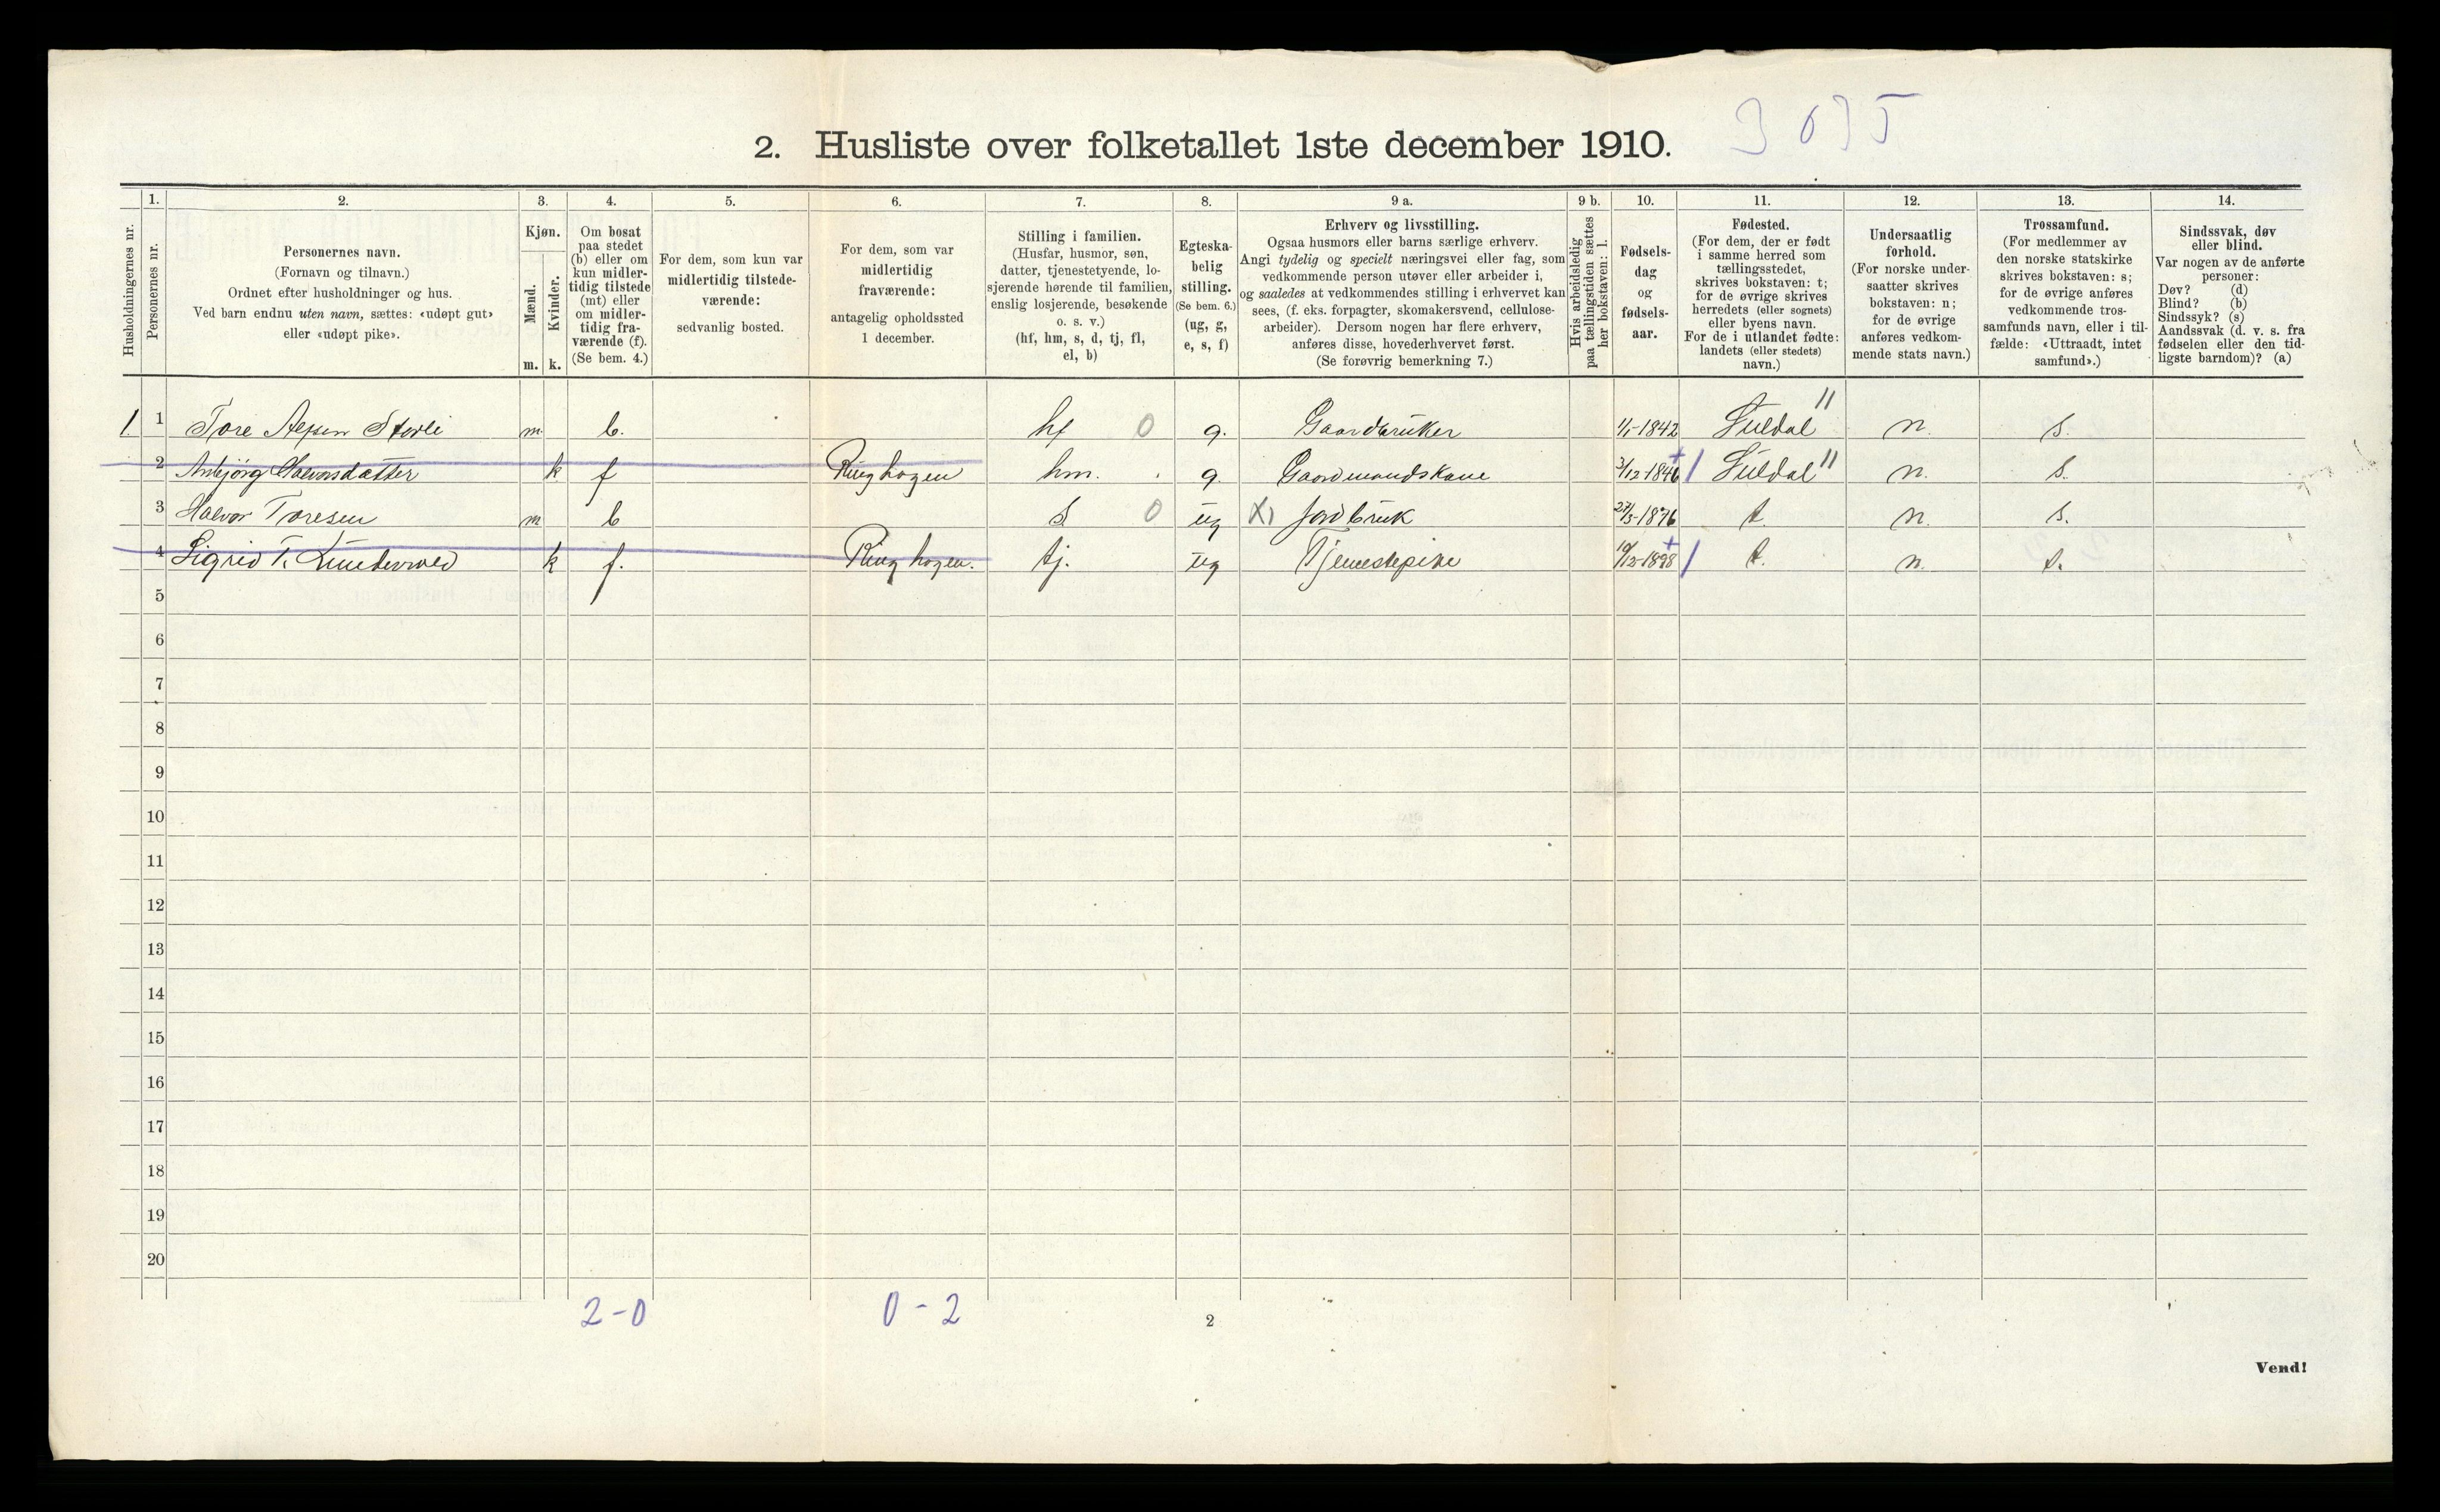 3035
2. Husliste over folketallet 1ste december 1910.
Husholdningernes nr.
1.
Personernes nr.
2.
Personernes navn.
(Fornavn og tilnavn.)
Ordnet efter husholdninger og hus.
Ved barn endnu uten navn, sættes: «udøpt gut»
eller «udøpt pike».
3.
Kjøn.
Mænd.
Kvinder.
m. k.
4.
Om bosat
paa stedet
(b) eller om
kun midler-
tidig tilstede
(mt) eller
om midler-
tidig fra-
værende (f).
(Se bem. 4.)
5.
For dem, som kun var
midlertidig tilstede-
værende:
sedvanlig bosted.
6.
For dem, som var
midlertidig
fraværende:
antagelig opholdssted
1 december.
7.
Stilling i familien.
(Husfar, husmor, søn,
datter, tjenestetyende, lo-
sjerende hørende til familien,
enslig losjerende, besøkende
o. s. v.)
(hf, hm, s, d, tj, fl,
el, b)
8.
Egteska-
belig
stilling.
(Se bem. 6.)
(ug, g,
e, s, f)
9 a.
Erhverv og livsstilling.
Ogsaa husmors eller barns særlige erhverv.
Angi tydelig og specielt næringsvei eller fag, som
vedkommende person utøver eller arbeider i,
og saaledes at vedkommendes stilling i erhvervet kan
sees, (f. eks. forpagter, skomakersvend, cellulose-
arbeider). Dersom nogen har flere erhverv,
anføres disse, hovederhvervet først.
(Se forøvrig bemerkning 7.)
9 b.
Hvis arbeidsledig
paa tællingstiden sættes
her bokstaven: l.
10.
Fødsels-
dag
og
fødsels-
aar.
11.
Fødested.
(For dem, der er født
i samme herred som
tællingsstedet,
skrives bokstaven: t;
for de øvrige skrives
herredets (eller sognets)
eller byens navn.
For de i utlandet fødte:
landets (eller stedets)
navn.)
12.
Undersaatlig
forhold.
(For norske under-
saatter skrives
bokstaven: n;
for de øvrige
anføres vedkom-
mende stats navn.)
13.
Trossamfund.
(For medlemmer av
den norske statskirke
skrives bokstaven: s;
for de øvrige anføres
vedkommende tros-
samfunds navn, eller i til-
fælde: «Uttraadt, intet
samfund».)
14.
Sindssvak, døv
eller blind.
Var nogen av de anførte
personer:
Døv? (d)
Blind? (b)
Sindssyk? (s)
Aandssvak (d. v. s. fra
fødselen eller den tid-
ligste barndom)? (a)
1. 1 Tore Storli m. b. hf 0 g. Gaardbruker 1/1-1842 Suldal 11 n. s.
2 Anbjörg Halvorsdatter k f Ringhogen hm. g. Gaardmandskone 3/12-1846 Suldal 11 n. s.
3 Halvor Toresen m b s 0 ug X) Jordbruk 27/3-1876 t. n. s.
4 Sigrid T. k f. Ringhogen. tj. ug Tjenestepike 10/12-1898 t. n. s.
5
6
7
8
9
10
11
12
13
14
15
16
17
18
19
20
2-0 0-2
2
Vend!